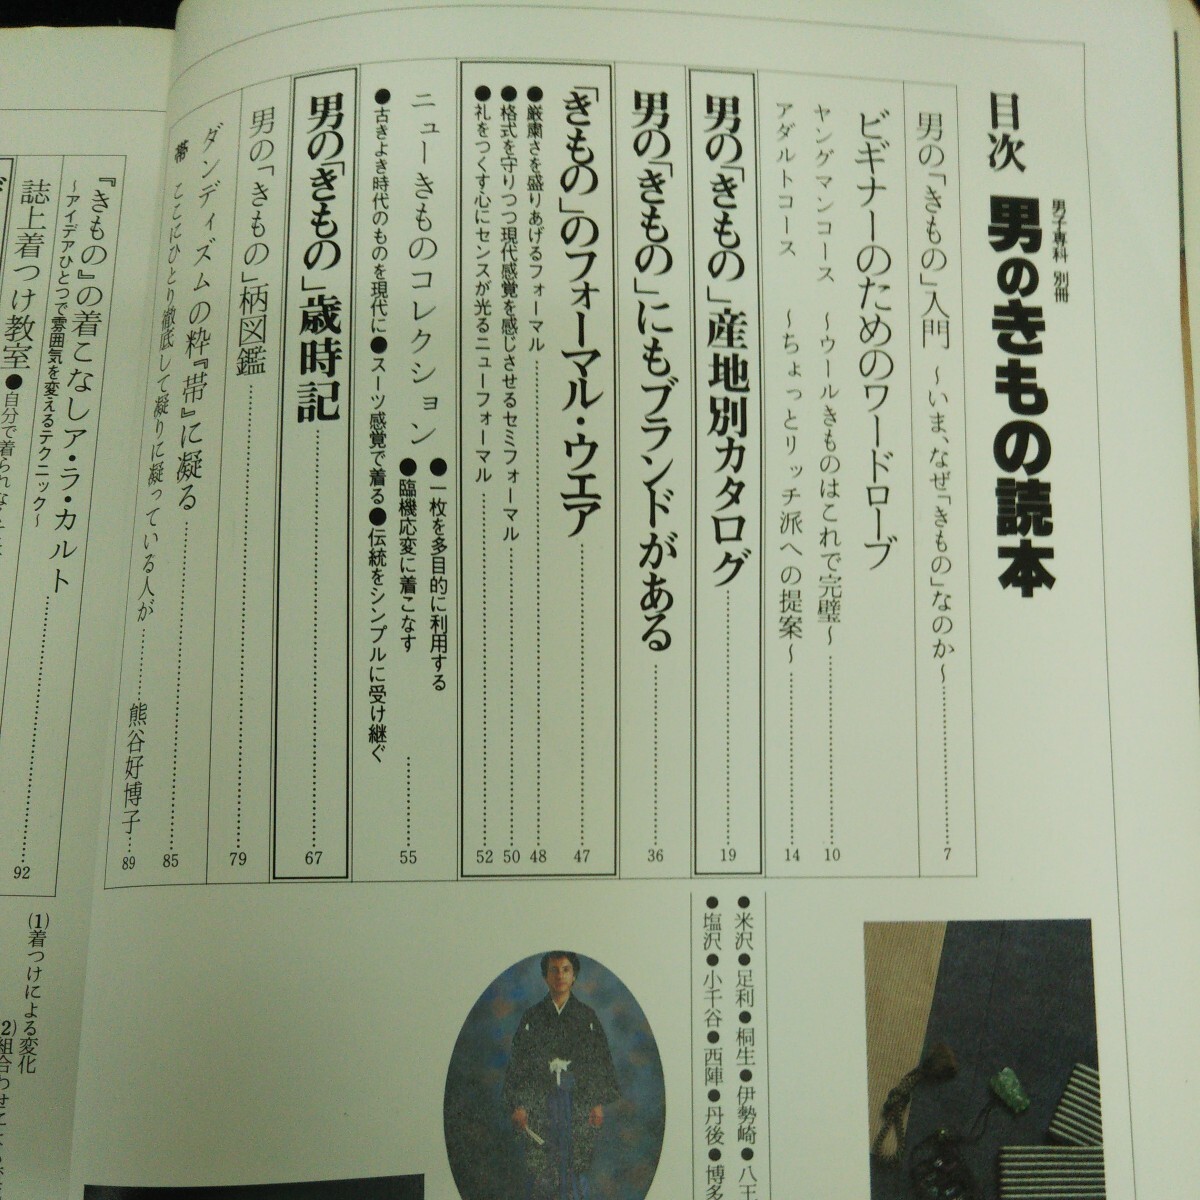 目次
男子専科 別冊
男のきもの読本
男の「きもの」入門 ～いま、なぜ「きもの」なのか～……7
ビギナーのためのワードローブ
ヤングマンコース ～ウールきものはこれで完璧～……10
アダルトコース ～ちょっとリッチ派への提案～……14
男の「きもの」産地別カタログ……19
男の「きもの」にもブランドがある……36
「きもの」のフォーマル・ウエア……47
●厳粛さを盛りあげるフォーマル……48
●格式を守りつつ現代感覚を感じさせるセミフォーマル……50
●礼をつくす心にセンスが光るニューフォーマル……52
ニューきものコレクション
●一枚を多目的に利用する
●臨機応変に着こなす……55
●古きよき時代のものを現代に●スーツ感覚で着る●伝統をシンプルに受け継ぐ
男の「きもの」歳時記……67
男の「きもの」柄図鑑……79
ダンディズムの粋『帯』に凝る……85
帯 ここにひとり徹底して凝りに凝っている人が……熊谷好博子…89
『きもの』の着こなしア・ラ・カルト……92
～アイデアひとつで雰囲気を変えるテクニック～
誌上着つけ教室●自分で着られな
●米沢●足利●桐生●伊勢崎●八王
●塩沢●小千谷●西陣●丹後●博多
(1)着つけによる変化
(2)組合わせ